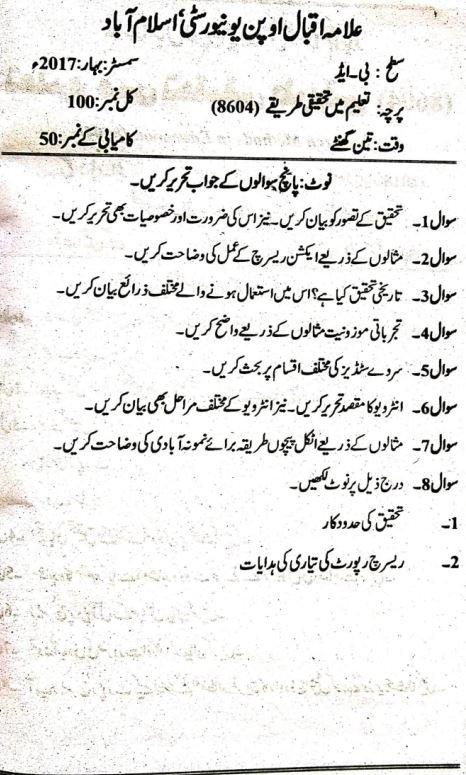 علامہ اقبال اوپن یونیورسٹی اسلام آباد
سطح: بی۔ایڈ سمسٹر: بہار: 2017ء
پرچہ: تعلیم میں تحقیقی طریقے (8604) کل نمبر: 100
وقت: تین گھنٹے کامیابی کے نمبر: 50
نوٹ: پانچ سوالوں کے جواب تحریر کریں۔
سوال 1۔ تحقیق کے تصور کو بیان کریں۔ نیز اس کی ضرورت اور خصوصیات بھی تحریر کریں۔
سوال 2۔ مثالوں کے ذریعے ایکشن ریسرچ کے عمل کی وضاحت کریں۔
سوال 3۔ تاریخی تحقیق کیا ہے؟ اس میں استعمال ہونے والے مختلف ذرائع بیان کریں۔
سوال 4۔ تجرباتی موزونیت مثالوں کے ذریعے واضح کریں۔
سوال 5۔ سروے سٹڈیز کی مختلف اقسام پر بحث کریں۔
سوال 6۔ انٹرویو کا مقصد تحریر کریں۔ نیز انٹرویو کے مختلف مراحل بھی بیان کریں۔
سوال 7۔ مثالوں کے ذریعے اٹکل پچوں طریقہ برائے نمونہ آبادی کی وضاحت کریں۔
سوال 8۔ درج ذیل پر نوٹ لکھیں۔
1۔ تحقیق کی حدود کار
2۔ ریسرچ رپورٹ کی تیاری کی ہدایات